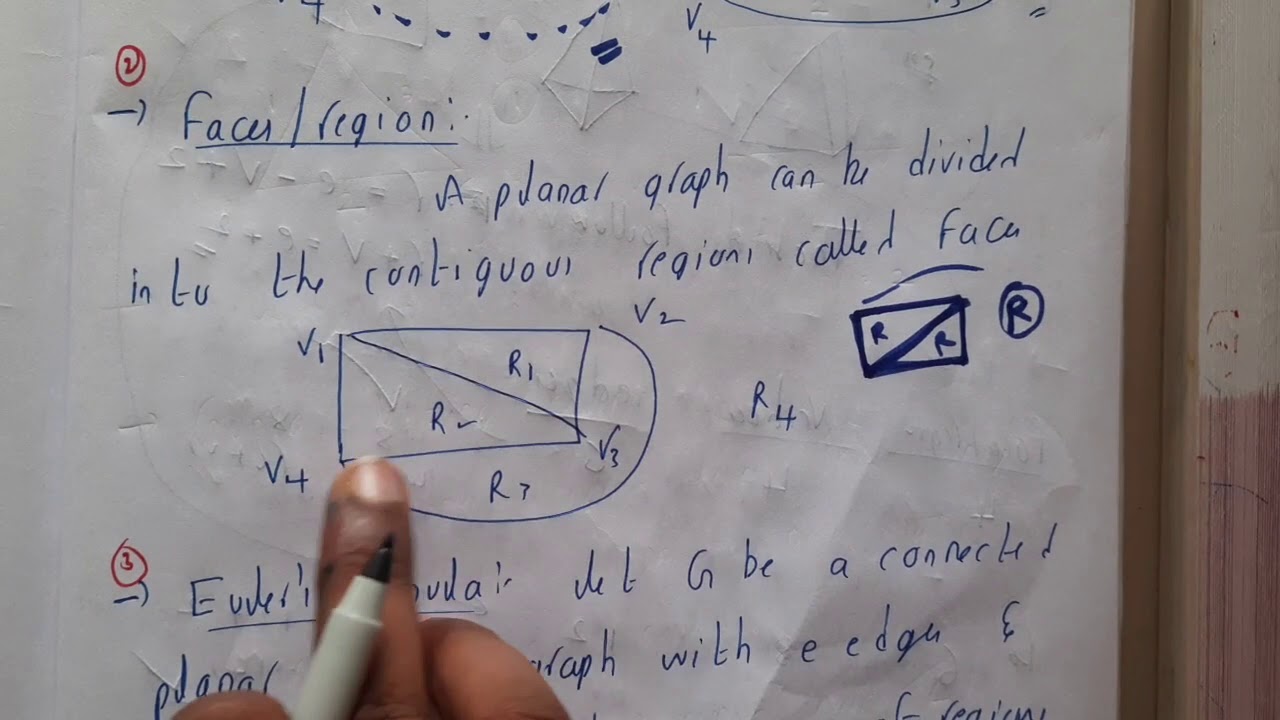 V4
2
→ Faces/region:
A planar graph can be divided
into the contiguous regions called Faces
V1
V2
R1
R R
R
R2
R4
V4
V3
R3
3
→ Euler's let G be a connected
planar graph with e edges &
of regions